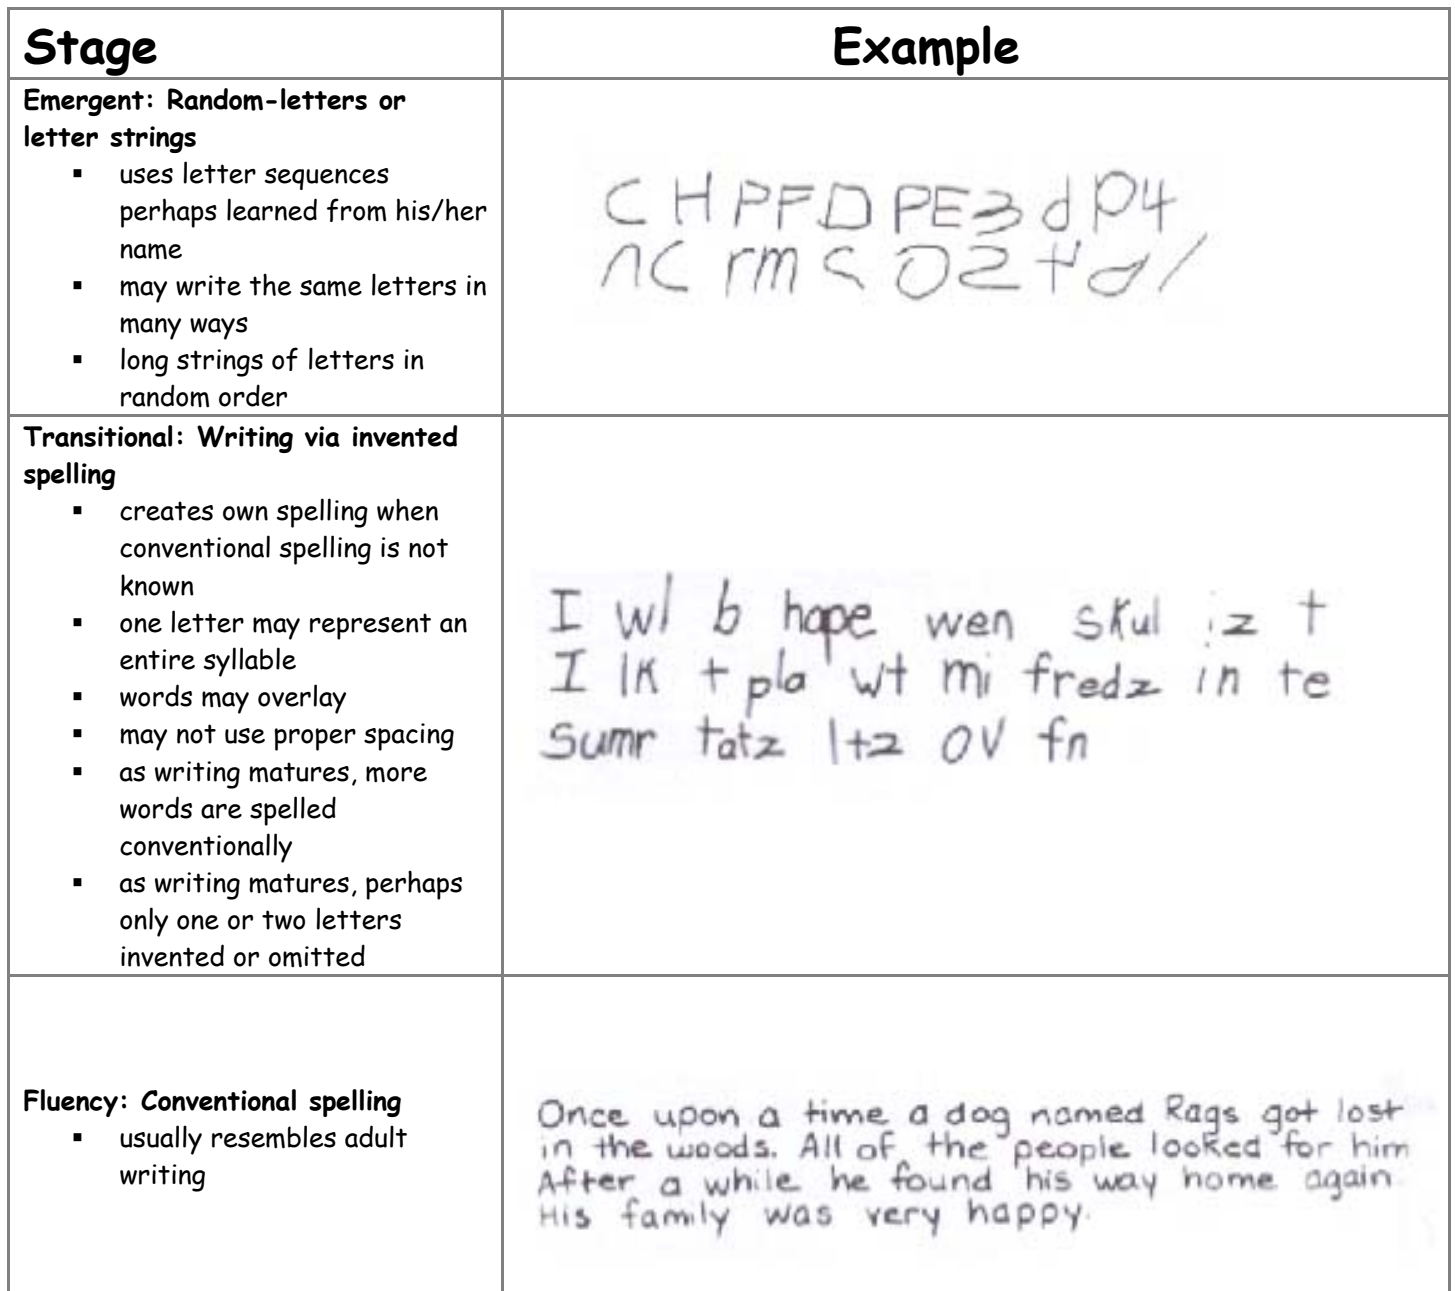 Stage
Example
Emergent: Random-letters or
letter strings
▪ uses letter sequences
perhaps learned from his/her
name
▪ may write the same letters in
many ways
▪ long strings of letters in
random order
C H P F D P E 3 d P 4
n C r m < O 2 t d /
Transitional: Writing via invented
spelling
▪ creates own spelling when
conventional spelling is not
known
▪ one letter may represent an
entire syllable
▪ words may overlay
▪ may not use proper spacing
▪ as writing matures, more
words are spelled
conventionally
▪ as writing matures, perhaps
only one or two letters
invented or omitted
I wl b hape wen skul iz t
I lk t pla wt mi fredz in te
Sumr tatz ltz ov fn
Fluency: Conventional spelling
▪ usually resembles adult
writing
Once upon a time a dog named Rags got lost
in the woods. All of the people looked for him
After a while he found his way home again.
His family was very happy.